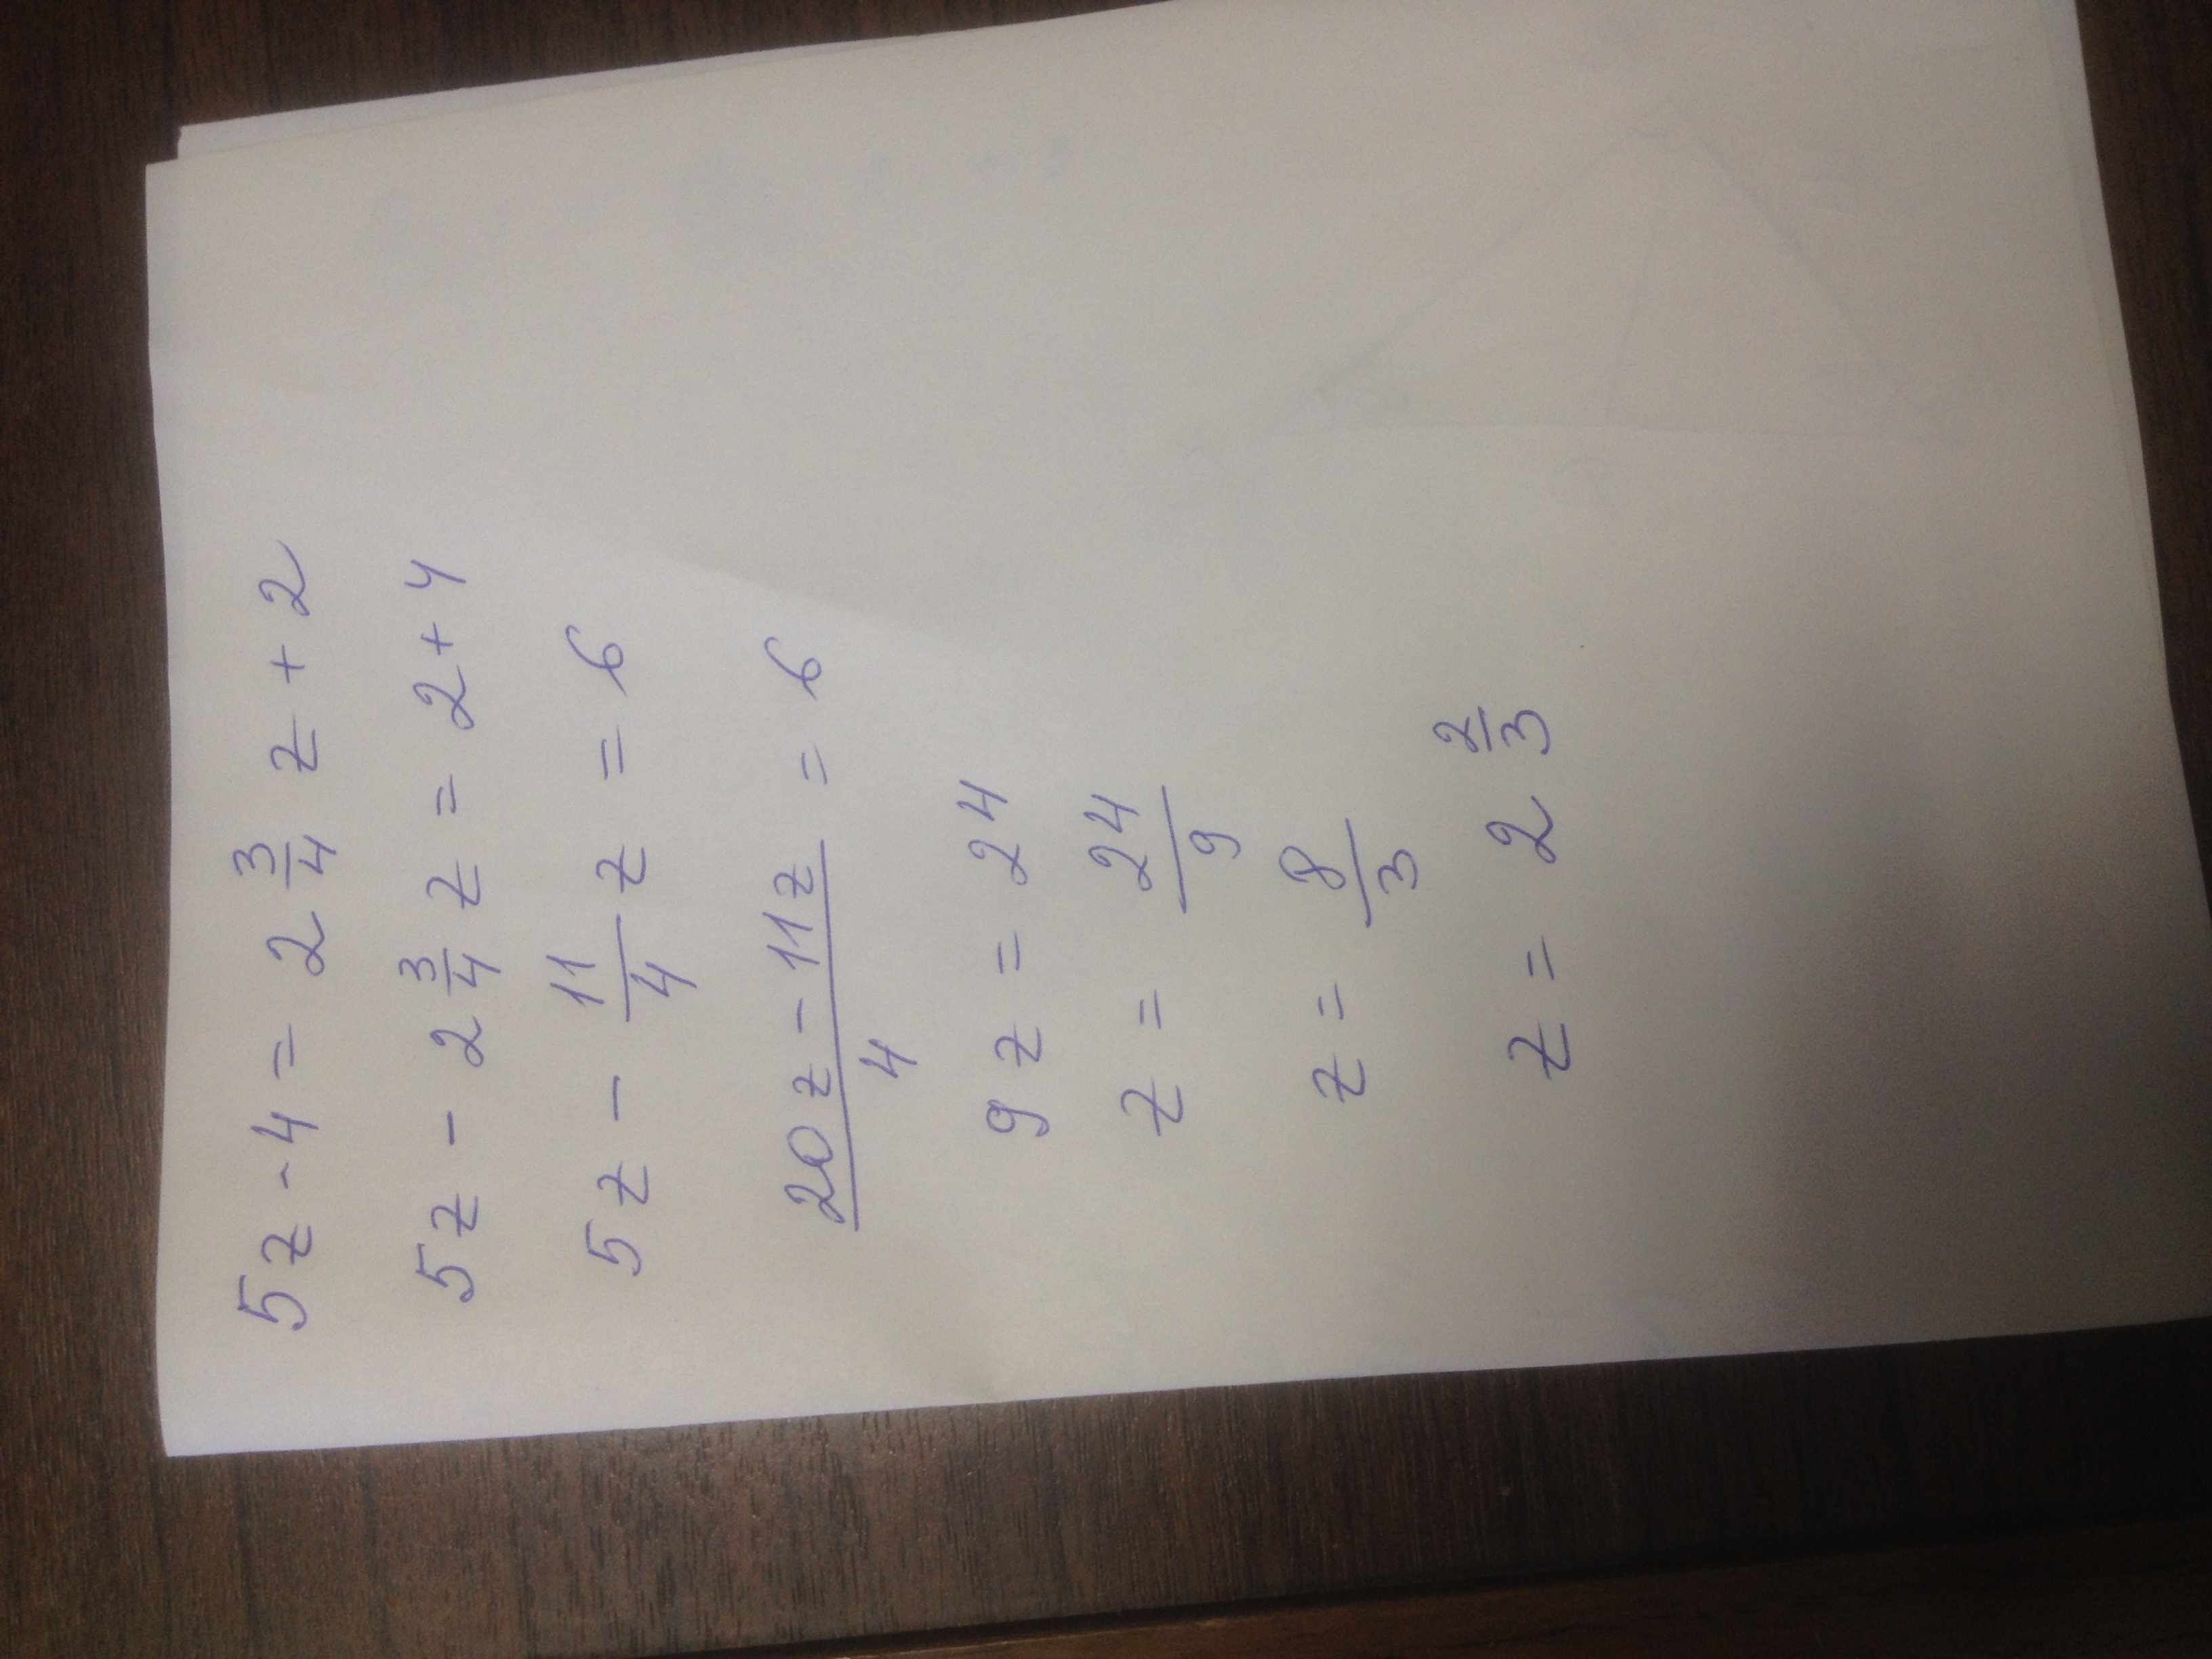 5z - 4 = 2 3/4 z + 2
5z - 2 3/4 z = 2 + 4
5z - 11/4 z = 6
(20z - 11z)/4 = 6
9z = 24
z = 24/9
z = 8/3
z = 2 2/3